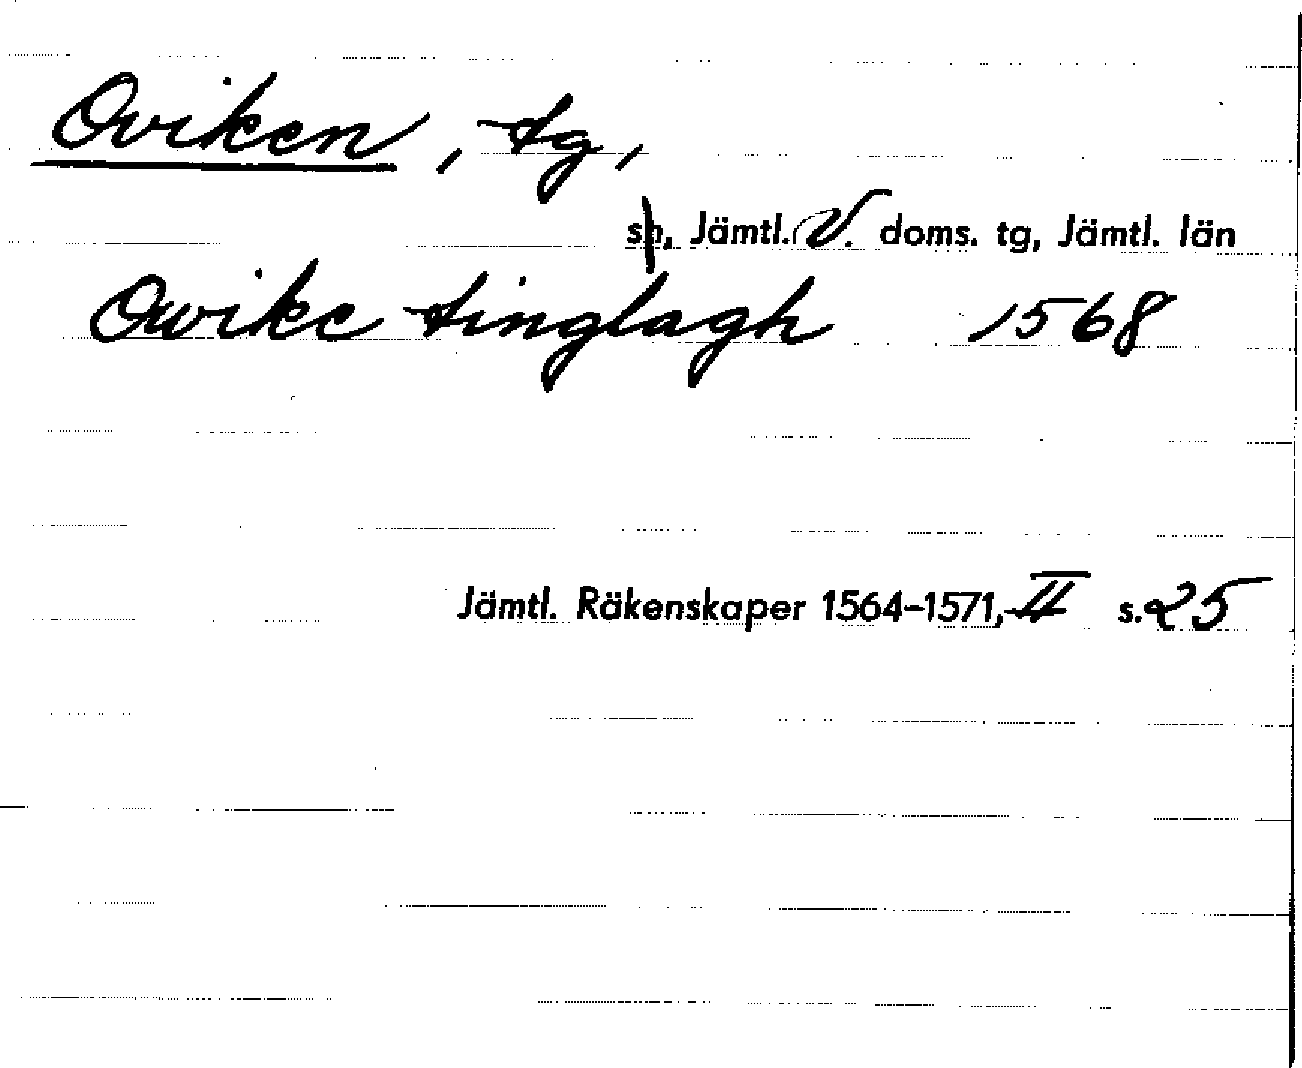 Oviken, tg,
sn, Jämtl. V. doms. tg, Jämtl. län
Owike tinglagh 1568
Jämtl. Räkenskaper 1564-1571, II s. 25